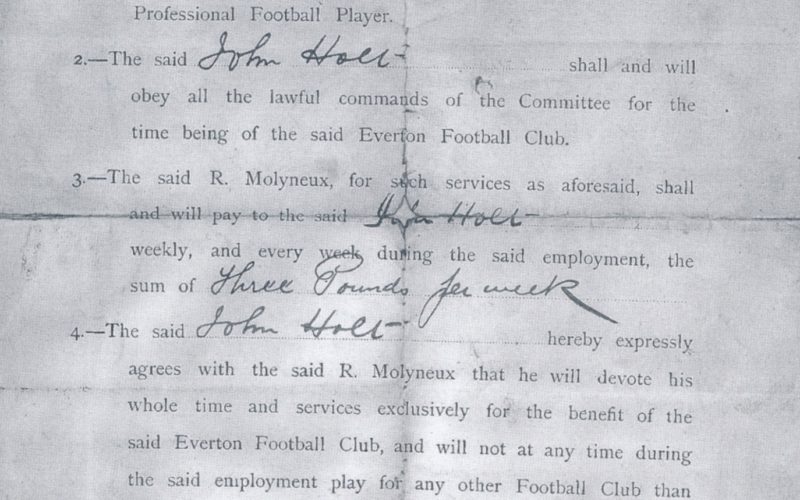 Professional Football Player.
2.—The said John Holt shall and will
obey all the lawful commands of the Committee for the
time being of the said Everton Football Club.
3.—The said R. Molyneux, for such services as aforesaid, shall
and will pay to the said John Holt
weekly, and every week during the said employment, the
sum of Three Pounds per week
4.—The said John Holt hereby expressly
agrees with the said R. Molyneux that he will devote his
whole time and services exclusively for the benefit of the
said Everton Football Club, and will not at any time during
the said employment play for any other Football Club than